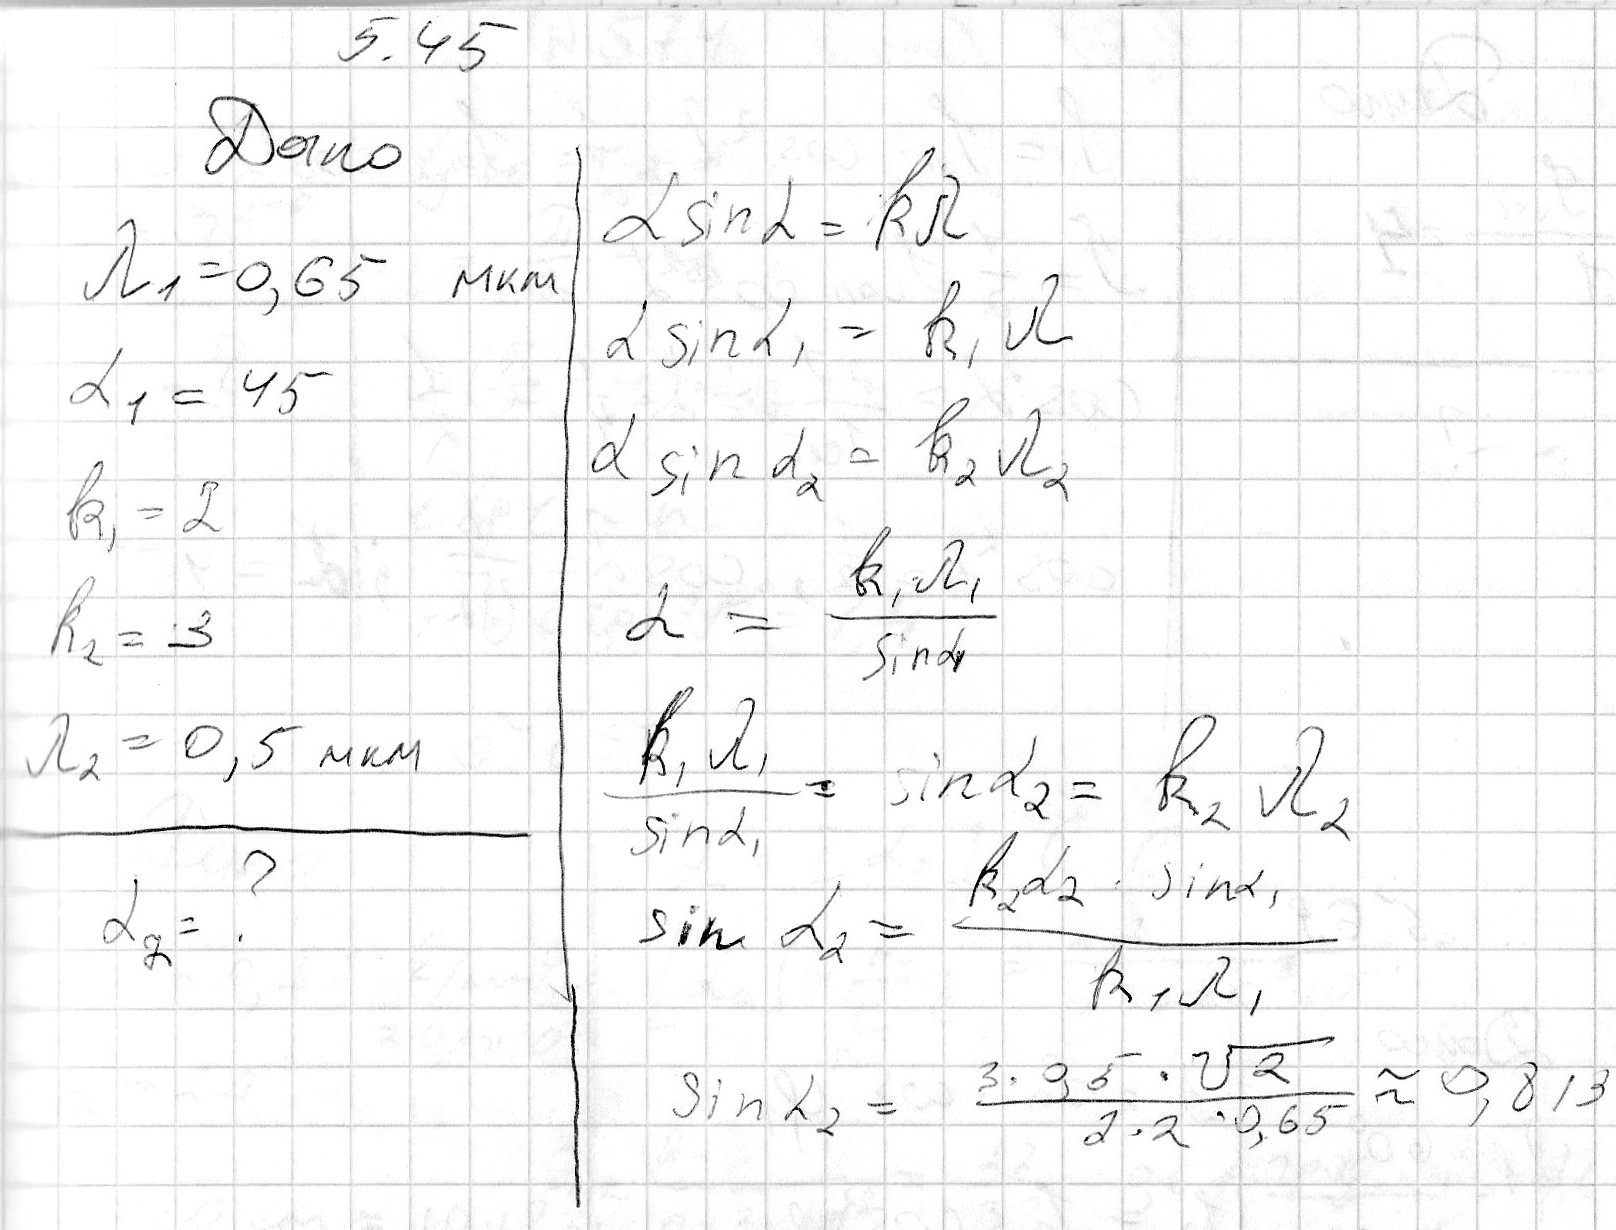 5.45
Дано
λ₁ = 0,65 мкм
α₁ = 45
k₁ = 2
k₂ = 3
λ₂ = 0,5 мкм
α₂ = ?
d sinα = kλ
d sinα₁ = k₁ λ
d sin α₂ = k₂ λ₂
d = k₁λ₁ / sinα₁
k₁ λ₁ / sinα₁ = sinα₂ = k₂ λ₂
sin α₂ = k₂α₂ · sinα₁ / k₁λ₁
sinα₂ = 3 · 0,5 · √2 / 2·2·0,65 ≈ 0,813